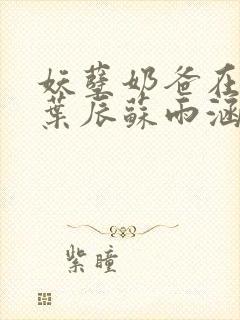 妖孽奶爸在
葉辰蘇雨涵
紫瞳